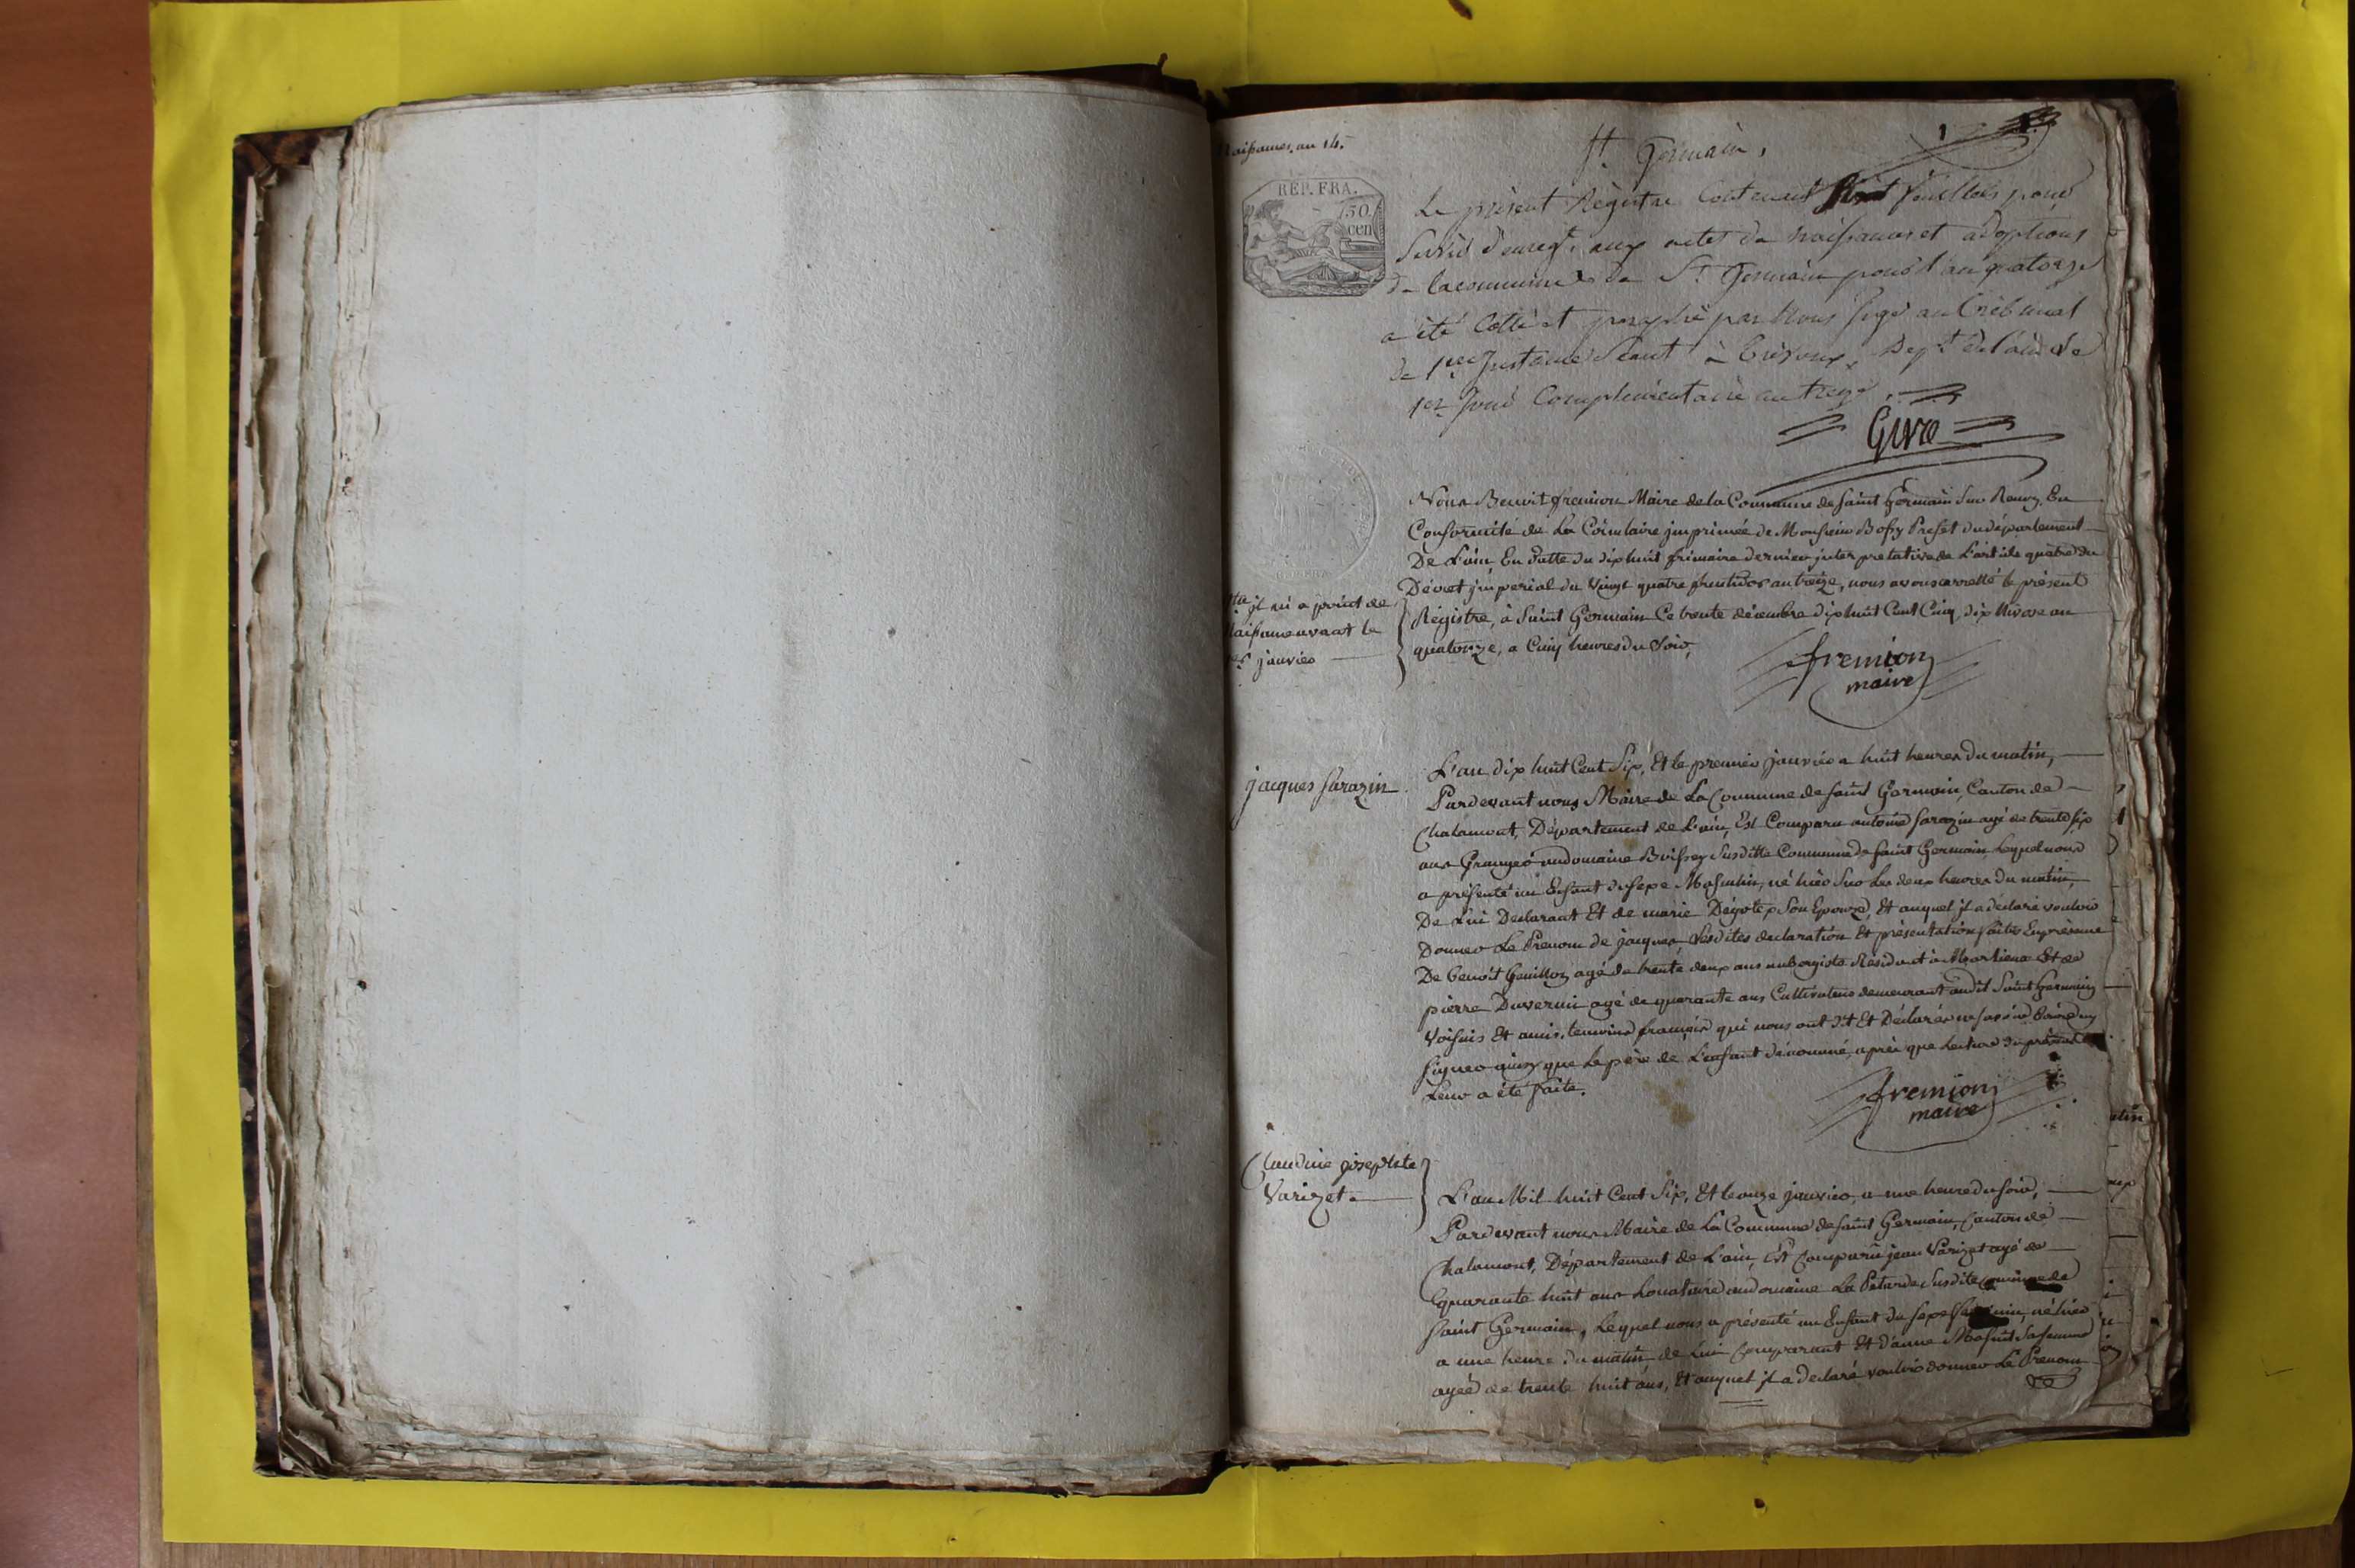 Naissances. an 14.
St. Germain,
1
REP. FRA.
50.
cen
Le présent Régistre Contenant feuillets pour
Servir d'enregt. aux actes de naissances et adoptions
de la commune de St. Germain pour l'an quatorze
a été Cotté et paraphé par Nous Juge au Tribunal
de 1ere Instance Séant à Trévoux, Dept. de l'ain le
1er Jour Complémentaire an treize.
Givre
Nous Benoit fremion Maire de la Commune de Saint Germain Sur Renon, En
Conformité de La Circulaire imprimée de Monsieur Bossy Préfet du département
De L'ain, En Datte du dix huit frimaire dernier interprétative de L'article quatre du
Décret impérial du Vingt quatre fructidor an treize, nous avons arretté le présent
Régistre, à Saint Germain Ce trente décembre dix huit Cent Cinq, dix Nivose an
quatorze, a Cinq heures du Soir,
fremion
maire
Nta il ni a point de
Naissance avant le
1er janvier
jacques Sarazin
L'an dix huit Cent Six, Et le premier janvier a huit heures du matin,
Pardevant nous Maire de La Commune de Saint Germain, Canton de
Chalamont, Département de L'ain, Est Comparu antoine Sarazin agé de trente six
ans Granger au domaine Boissey Susditte Commune de Saint Germain Lequel nous
a présenté un Enfant du Sexe Masculin, né hier Sur Les deux heures Du matin,
De Lui Déclarant Et de marie Son Epouze, Et auquel il a déclaré vouloir
Donner Le Prenom de jacques, Lesdites declaration Et présentation faites En présence
De benoit Genillon agé de trente deux ans aubergiste Résidant à Marlieux Et de
pierre Duvernai agé de quarante ans Cultivateur demeurant audit Saint Germain
Voisins Et amis, temoins français qui nous ont dit Et Déclarés ne savoir Ecrire ny
Signer ainsy que Le père de L'enfant dénommé, après que Lecture du présent
Leur a été faite.
fremion
maire
Claudine josephte
Varizet
L'an Mil huit Cent Six, Et le onze janvier, a une heure du soir,
Pardevant nous Maire de La Commune de Saint Germain, Canton de
Chalamont, Département de L'ain, Est Comparu jean Varizet agé de
quarante huit ans Locataire au domaine La Petarde Susdite commune de
Saint Germain, Lequel nous a présenté un Enfant du Sexe né hier
a une heure du matin, de Lui Comparant Et d'anne Sa femme
agée de trente huit ans, Et auquel il a déclaré vouloir donner Le Prenom
de